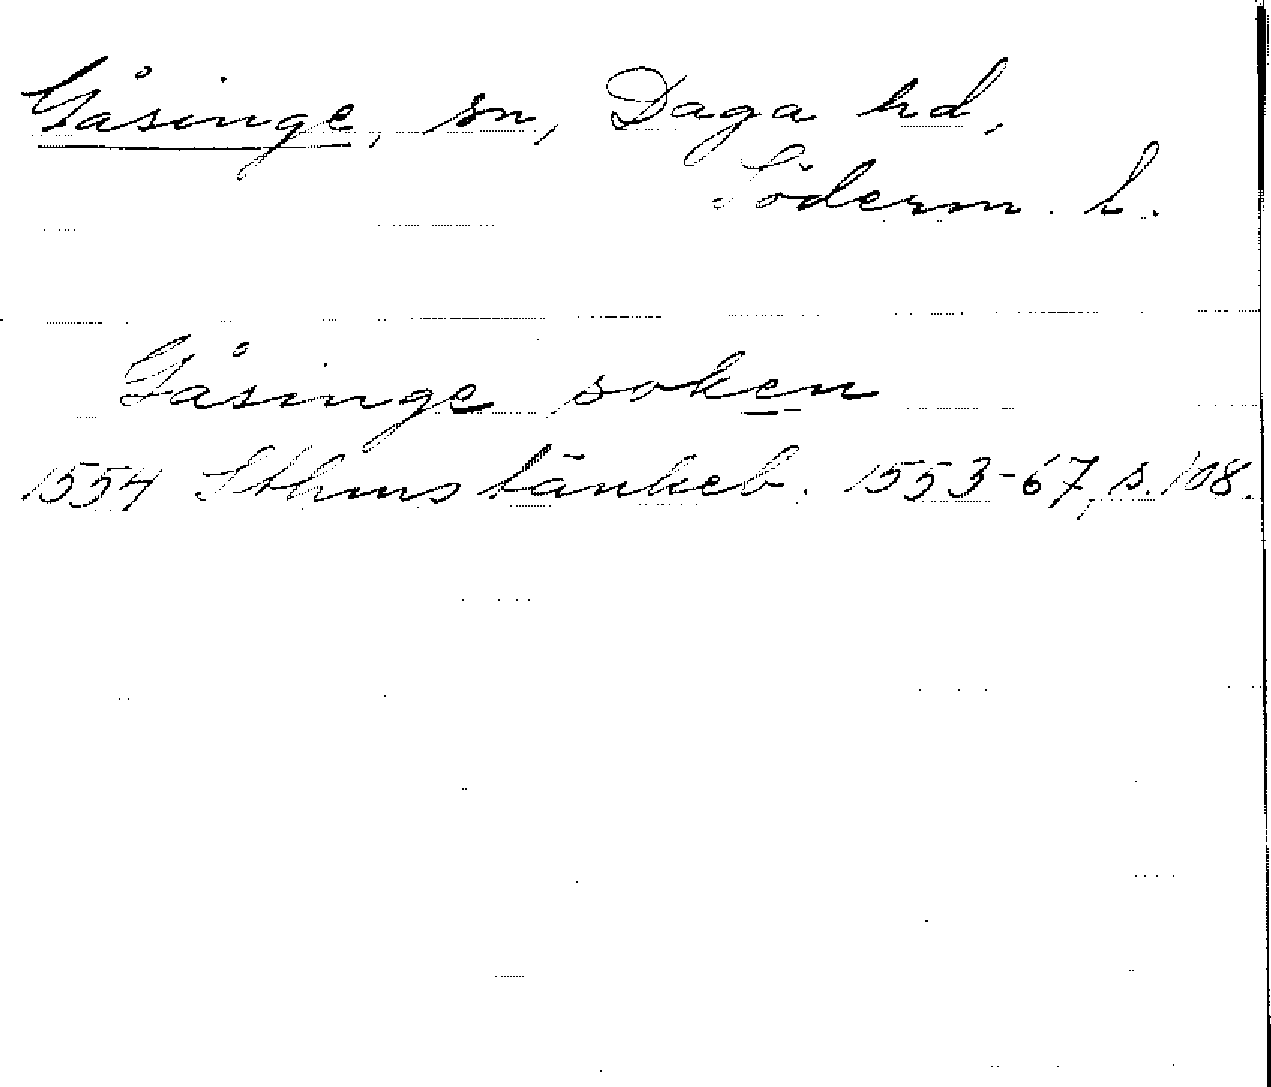 Gåsinge, sn, Daga hd,
Söderm. l.
Gåsinge soken
1554 Sthms tänkeb. 1553-67, s. 108.